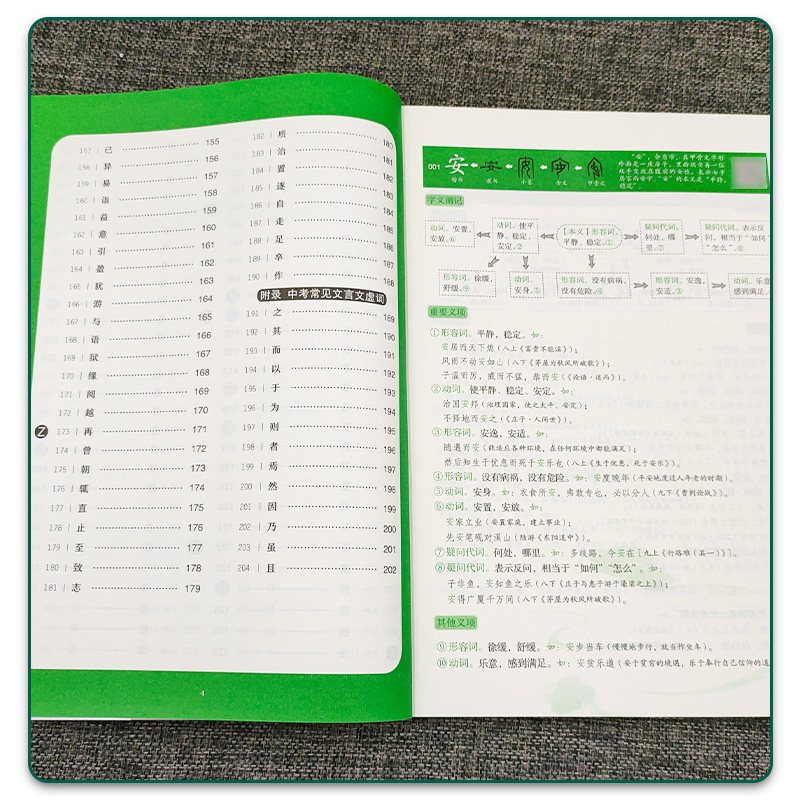 157 | 已 155
158 | 异 156
159 | 易 157
160 | 诣 158
161 | 益 159
162 | 意 160
163 | 引 161
164 | 盈 162
165 | 犹 163
166 | 游 164
167 | 与 165
168 | 语 166
169 | 狱 167
170 | 缘 168
171 | 阅 169
172 | 越 170
Z 173 | 再 171
174 | 曾 172
175 | 朝 173
176 | 辄 174
177 | 直 175
178 | 止 176
179 | 至 177
180 | 致 178
181 | 志 179
182 | 质 180
183 | 治 181
184 | 置 182
185 | 逐 183
186 | 自 184
187 | 走 185
188 | 足 186
189 | 卒 187
190 | 作 188
附录 中考常见文言文虚词
191 | 之 189
192 | 其 190
193 | 而 191
194 | 以 192
195 | 于 193
196 | 为 194
197 | 则 195
198 | 者 196
199 | 焉 197
200 | 然 198
201 | 因 199
202 | 乃 200
203 | 虽 201
204 | 且 202
4
001 安
楷书 隶书 小篆 金文 甲骨文
字义图记
动词。安置,安放。⑥
动词。使平静、稳定、安定。②
【本义】形容词。平静,稳定。①
疑问代词。何处,哪里。⑦
疑问代词。表示反问,相当于“如何”“怎么”。⑧
形容词。徐缓,舒缓。⑨
动词。安身。⑤
形容词。没有病祸,没有危险。④
形容词。安逸,安适。③
动词。乐意,感到满足。
重要义项
①形容词。平静,稳定。如:
安居而天下熄(八上《富贵不能淫》);
风雨不动安如山(八下《茅屋为秋风所破歌》);
子温而厉,威而不猛,恭而安(《论语·述而》)。
②动词。使平静、稳定、安定。如:
治国安邦(治理国家,使之太平、安定);
不择地而安之(《庄子·人间世》)。
③形容词。安逸,安适。如:
随遇而安(能适应各种环境,在任何环境中都能满足);
然后知生于忧患而死于安乐也(八上《生于忧患,死于安乐》)。
④形容词。没有病祸,没有危险。如:安度晚年(平安地度过人年老的时期)。
⑤动词。安身。如:衣食所安,弗敢专也,必以分人(九下《曹刿论战》)。
⑥动词。安置,安放。如:
安家立业(安置家庭,建立事业);
先安笔砚对溪山(陆游《东阳道中》)。
⑦疑问代词。何处,哪里。如:多歧路,今安在[九上《行路难(其一)》]。
⑧疑问代词。表示反问,相当于“如何”“怎么”。如:
子非鱼,安知鱼之乐(八下《庄子与惠子游于濠梁之上》);
安得广厦千万间(八下《茅屋为秋风所破歌》)。
其他义项
⑨形容词。徐缓,舒缓。如:安步当车(慢慢地步行,就当作坐车)。
⑩动词。乐意,感到满足。如:安贫乐道(安于贫穷的境遇,乐于奉行自己信仰的道